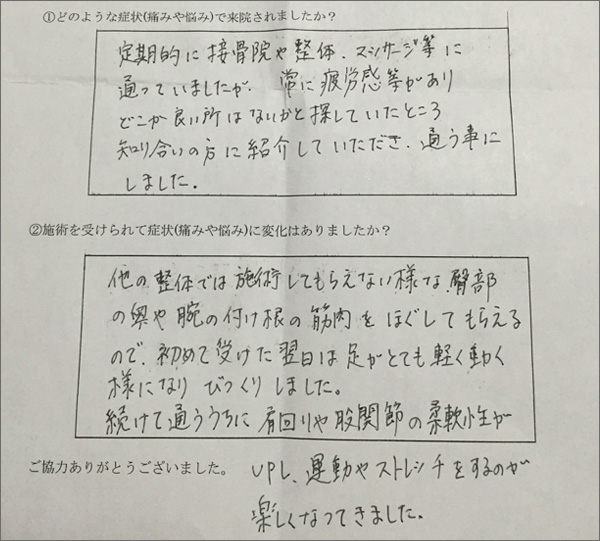 ①どのような症状(痛みや悩み)で来院されましたか？
定期的に接骨院や整体、マッサージ等に
通っていましたが、常に疲労感等があり
どこか良い所はないかと探していたところ
知り合いの方に紹介していただき、通う事に
しました。
②施術を受けられて症状(痛みや悩み)に変化はありましたか？
他の整体では施術してもらえない様な臀部
の奥や腕の付け根の筋肉をほぐしてもらえる
ので、初めて受けた翌日は足がとても軽く動く
様になりびっくりしました。
続けて通ううちに肩回りや股関節の柔軟性が
ご協力ありがとうございました。
UPし、運動やストレッチをするのが
楽しくなってきました。